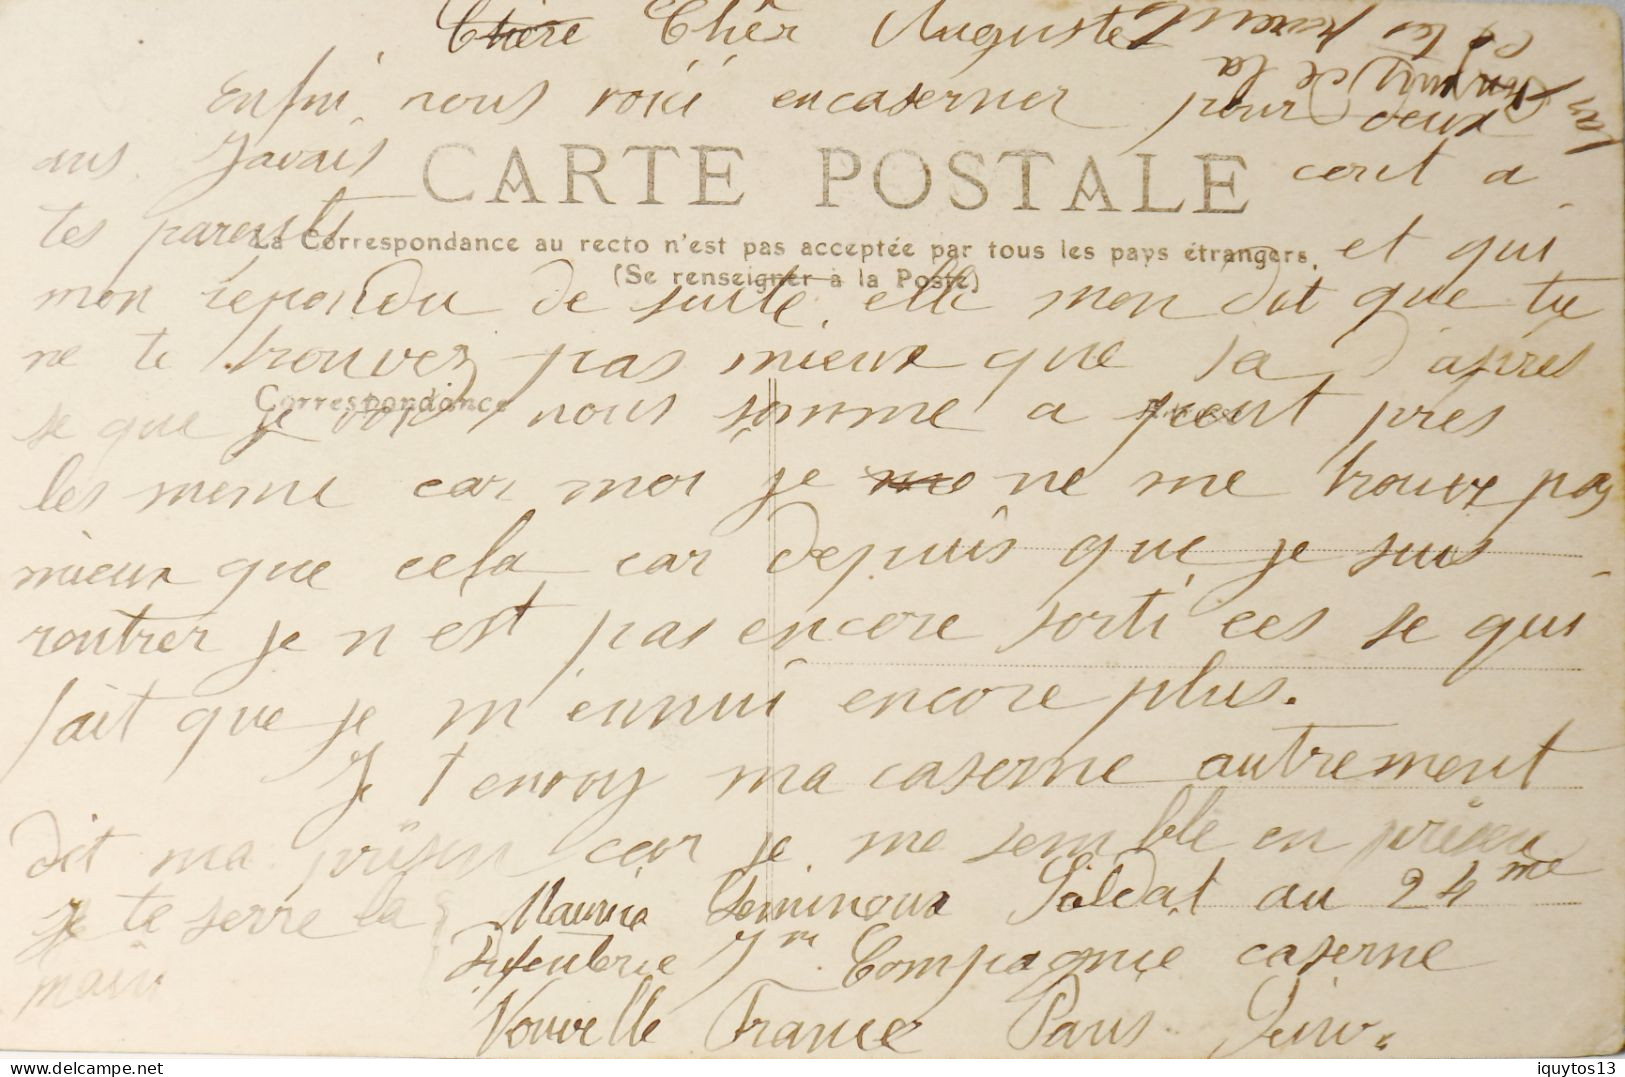 Chère Chèr Auguste
Enfin nous voici encaserner pour deux
ans. Javais ecrit a
CARTE POSTALE
tes parents et qui
La Correspondance au recto n'est pas acceptée par tous les pays étrangers.
(Se renseigner à la Poste)
mon repondu de suite, elle mon dit que tu
ne te trouvez pas mieux que sa d'apres
Correspondance
se que je vois, nous somme a peut pres
les meme car moi je me ne me trouve pas
mieux que cela car depuis que je suis
rentrer je n est pas encore sorti ces se qui
fait que je m'ennui encore plus.
Je t envoy ma caserne autrement
dit ma prison car je me semble en prison
Je te serre la
main
Maurice Soldat au 24me
Compagnie caserne
Nouvelle France Paris
la
de la
et tes parents
iquytos13